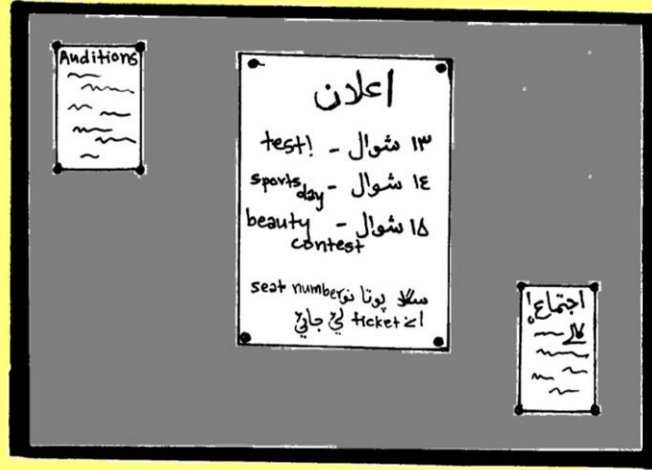 Auditions
اعلان
١٣ شوال - test!
١٤ شوال - sports day
١٥ شوال - beauty contest
پوتا نو seat number
انے ticket لئي جائي
اجتماع!